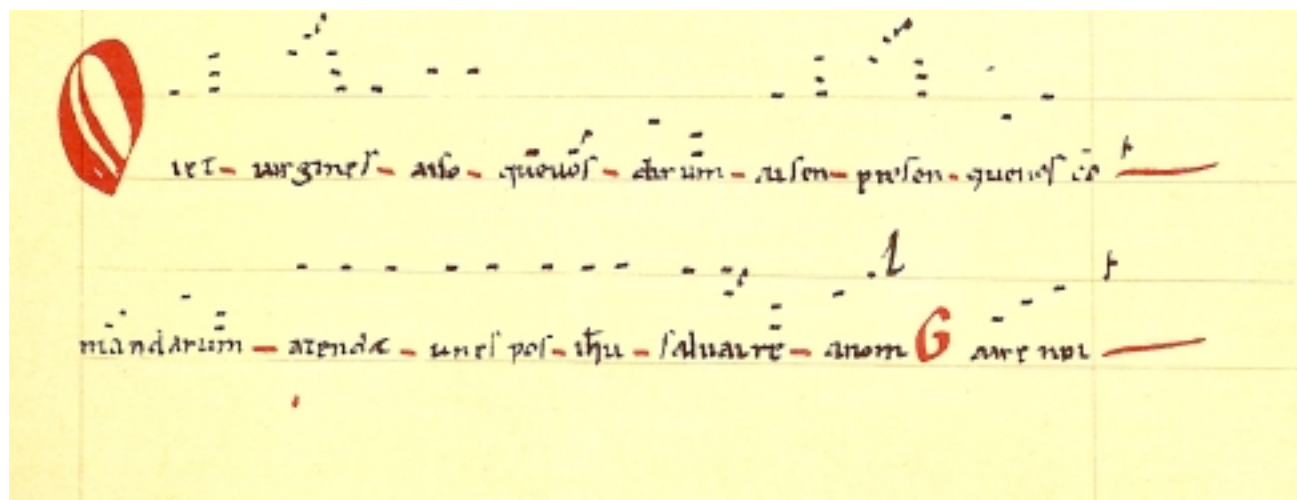 Oiet - uirgines - aiso - que uos - dirum - aisen - presen - que uos cō
mandarum - atendet - un espos - ihu - saluaire - a nom G aire noi